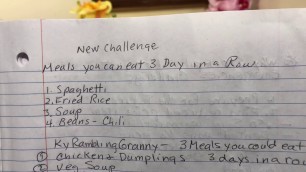 New Challenge
Meals you can eat 3 Day in a Row
1 Spaghetti
2. Fried Rice
3. Soup
4. Beans - Chili
KyRamblingGranny - 3 Meals you could eat
① Chicken & Dumplings 3 days in a row
② Veg Soup